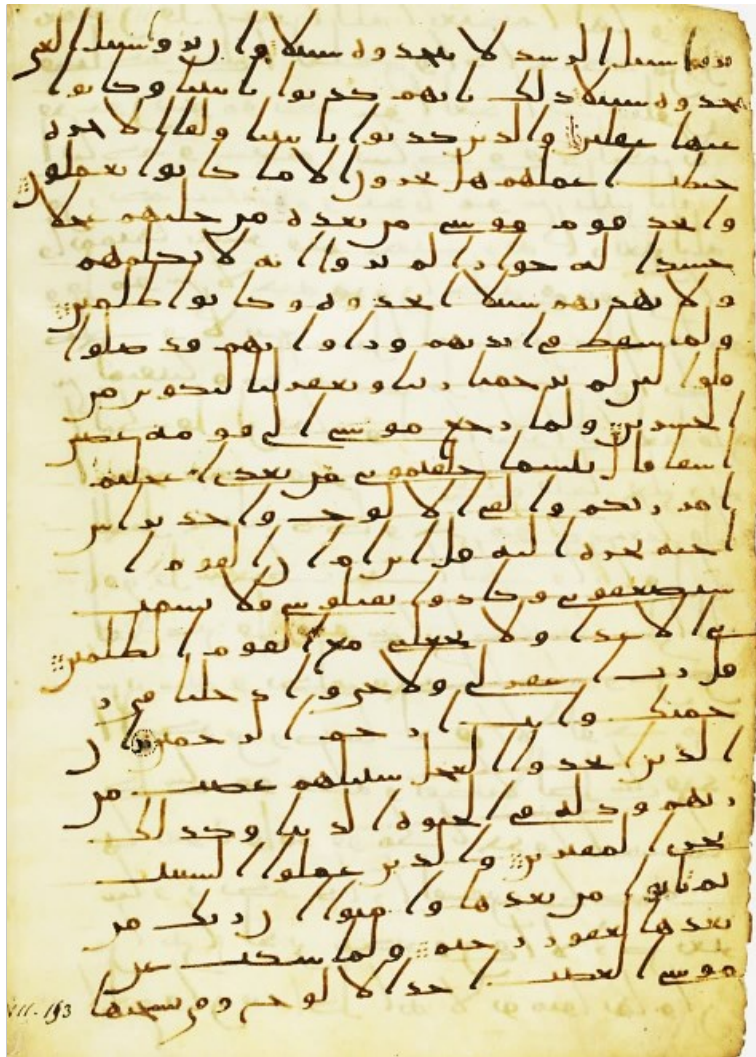 يروا سبيل الرشد لا يتخذوه سبيلا وان يروا سبيل الغي
يتخذوه سبيلا ذلك بانهم كذبوا باييتنا وكانوا
عنها غفلين والذين كذبوا باييتنا ولقا الاخرة
حبطت اعملهم هل يجزون الا ما كانوا يعملون
واتخذ قوم موسى من بعده من حليهم عجلا
جسدا له خوار الم يروا انه لا يكلمهم
ولا يهديهم سبيلا اتخذوه وكانوا ظلمين
ولما سقط في ايديهم وراوا انهم قد ضلوا
قلوا لئن لم يرحمنا ربنا ويغفر لنا لنكونن من
الخسرين ولما رجع موسى الى قومه غضبن
اسفا قل بئسما خلفتموني من بعدي اعجلتم
امر ربكم والقى الالوح واخذ براس
اخيه يجره اليه قل ابن ام ان القوم ا
ستضعفوني وكادوا يقتلونني فلا تشمت
بي الاعدا ولا تجعلني مع القوم الظلمين
قل رب اغفر لي ولاخي وادخلنا في ر
حمتك وانت ارحم الرحمين ان
الذين اتخذوا العجل سينلهم غضب من
ربهم وذلة في الحيوة الدنيا وكذلك
نجزي المفترين والذين عملوا السيت
ثم تابوا من بعدها وامنوا ان ربك من
بعدها لغفور رحيم ولما سكت عن
موسى الغضب اخذ الالوح وفي نسختها
VII-153